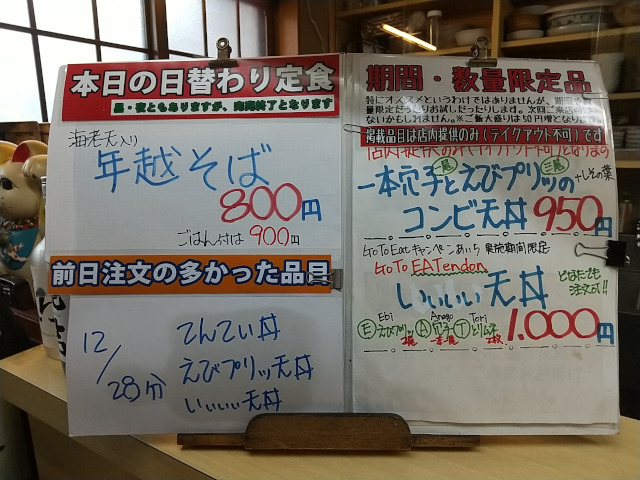 本日の日替わり定食
昼・夜ともありますが、売切終了となります
海老天入り
年越そば
800円
ごはん付は 900円
前日注文の多かった品目
12/28分
てんてい丼
えびプリッ天丼
いいいい天丼
期間・数量限定品
特にオススメというわけではありませんが、期間
量限定だったりお試しだったりします。次回ご来店
ないかもしれません。※ご飯大盛りは50円増となり
掲載品目は店内提供のみ(テイクアウト不可)です
一本穴子とえびプリッの
一尾
三尾
+しその葉
コンビ天丼 950円
Go To Eat キャンペーンあいち 実施期間限定
Go To EATendon
いいいい天丼
どなたでも
注文可!!
Ebi
Anago
Tori
E えびプリッ A 穴子 T とりムネ
2尾
一本
2枚
1.000円